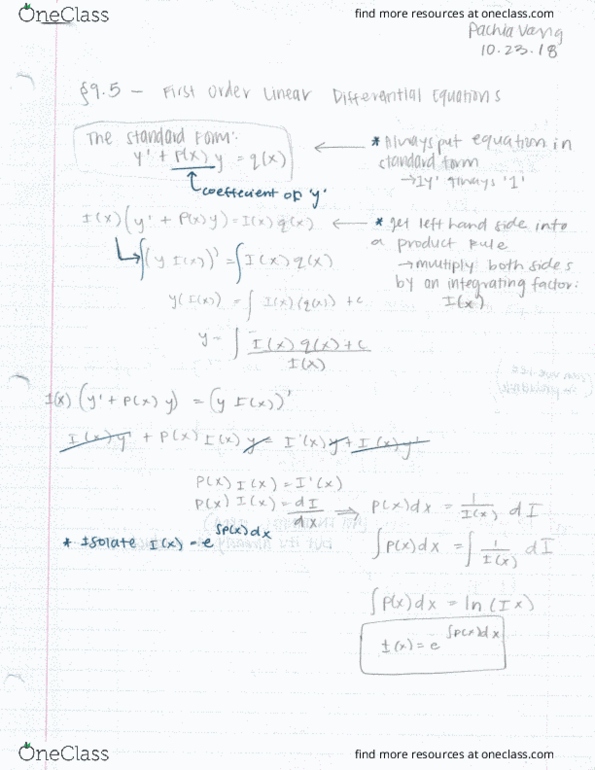 OneClass
find more resources at oneclass.com
Pachia Vang
10.23.18
§9.5 – First Order Linear Differential Equations
The standard Form:
y' + P(x) y = q(x)
coefficient of 'y'
* Always put equation in
standard form
→ 1y' always '1'
I(x)(y' + P(x)y) = I(x)q(x)
* get left hand side into
a product rule
→ multiply both sides
by an integrating factor:
I(x)
∫(y I(x))' = ∫I(x)q(x)
y(I(x)) = ∫ I(x)(q(x)) + c
y = ∫ I(x)q(x)+c / I(x)
I(x)(y' + P(x) y) = (y I(x))'
I(x)y' + P(x) I(x) y = I'(x)y + I(x)y'
P(x) I(x) = I'(x)
P(x) I(x) = dI/dx ⇒ P(x)dx = 1/I(x) dI
* Isolate I(x) = e^∫P(x)dx
∫P(x)dx = ∫ 1/I(x) dI
∫P(x)dx = ln(Ix)
I(x) = e^∫P(x)dx
OneClass
find more resources at oneclass.com